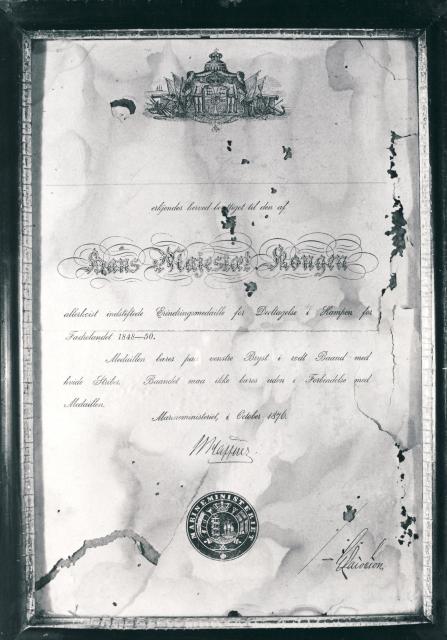 erkjendes herved berettiget til den af
Hans Majestæt Kongen
allerhøist indstiftede Erindringsmedaille for Deeltagelse i Kampen for
Fædrelandet 1848—50.
Medaillen bæres paa venstre Bryst i rødt Baand med
hvide Striber. Baandet maa ikke bæres uden i Forbindelse med
Medaillen.
Marineministeriet, i October 1876.
MARINEMINISTERIET